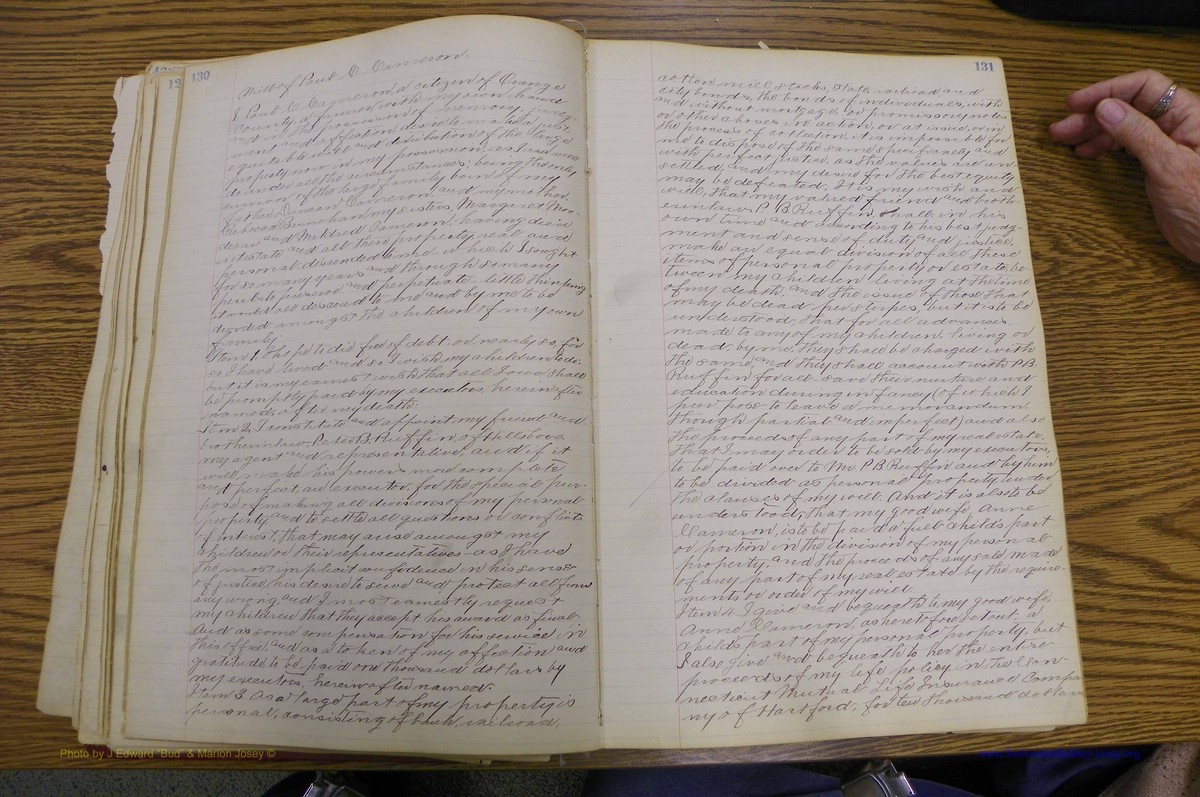 130
Will of Paul C Cameron.
I Paul C Cameron a citizen of Orange
County, of
and in the possession of memory
ment and affection desire to make a just,
equitable will and distribution of the large
property now in my possession, as I am
under all the circumstances; being the only
survivor of the large family born of my
father Duncan Cameron and my mother
Rebecca Benehan, my sisters, Margaret Mor-
decai and Mildred Cameron having died
intestate and all their property real and
personal descended to me, which I sought
for so many years and through so many
perils to preserve and perpetuate little thinking
it would all descend to me and by me to be
divided amongst the children of my own
family.
Item 1. I hope to die free of debt, or nearly so, for
so I have lived and so I wish my children to do;
but it is my earnest wish that all I owe shall
be promptly paid by my executors, hereinafter
named, after my death.
Item 2, I constitute and appoint my friend and
brother in law, Peter B. Ruffin, of Hillsboro,
my agent and representative and if it
will make his powers more complete
and perfect, an executor, for the special pur-
pose of making all divisions of my personal
property and to settle all questions or conflicts
of interest, that may arise amongst my
children or their representatives as I have
the most implicit confidence in his sense
of justice, his desire to serve and protect all from
any wrong and I most earnestly request
my children that they accept his award as final.
And as some compensation for his service in
this office, and as a token of my affection and
gratitude to be paid one thousand dollars by
my executors, herein after named.
Item 3 As a large part of my property is
personal, consisting of bank, railroad,
131
cotton mill stocks, State railroad and
city bonds, the bonds of individuals, with
and without mortgage, or promissory notes
or other choses in action, or at issue, or in
the process of collection, it is impossible for
me to dispose of the same specifically and
with perfect justice, as the values are un-
settled, and my desire for the best equity
may be defeated, It is my wish and
will, that my valued friend and broth-
er in law P. B. Ruffin, shall in his
own time and according to his best judg-
ment and sense of duty and justice,
make an equal division of all these
items of personal property or estate, be-
tween my children living at the time
of my death, and the issue of those that
may be dead per stirpes, but it is to be
understood, that for all advances,
made to any of my children, living or
dead, by me, they shall be charged with
the same, and they shall account with P.B.
Ruffin for all save their nurture and
education during infancy (of which I
purpose to leave a memorandum
though partial and imperfect) and also
the proceeds of any part of my real estate
that I may order to be sold by my executors,
to be paid over to Mr P.B Ruffin and by him
to be divided as personal property, under
the clauses of my will. And it is also to be
understood, that my good wife Anne
Cameron, is to be paid a full childs part
or portion in the division of my personal
property, and the proceeds of any sale, made
of any part of my real estate by the require-
ments or order of my will.
Item 4. I give and bequeath to my good wife
Anne Cameron, as heretofore set out, a
childs part of my personal property, but
I also give and bequeath to her the entire
proceeds of my life policy in the Con-
necticut Mutual Life Insurance Compa
ny of Hartford, for ten thousand dollars
Photo by J Edward "Bud" & Marion Josey ©